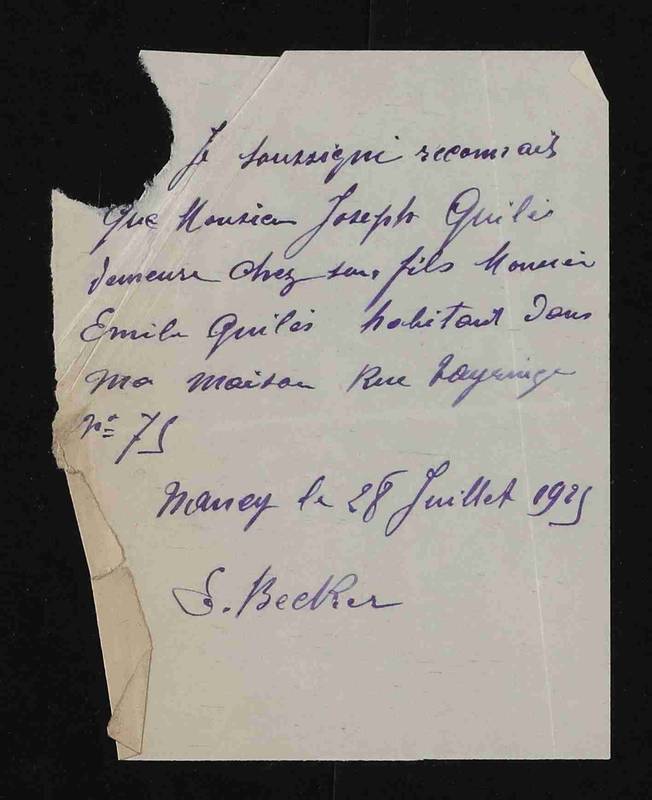 Je soussigné reconnais
que Monsieur Joseph Quilès
demeure chez son fils Monsieur
Emile Quilès habitant dans
ma maison Rue
Nº 75
Nancy le 28 Juillet 1925
Becker